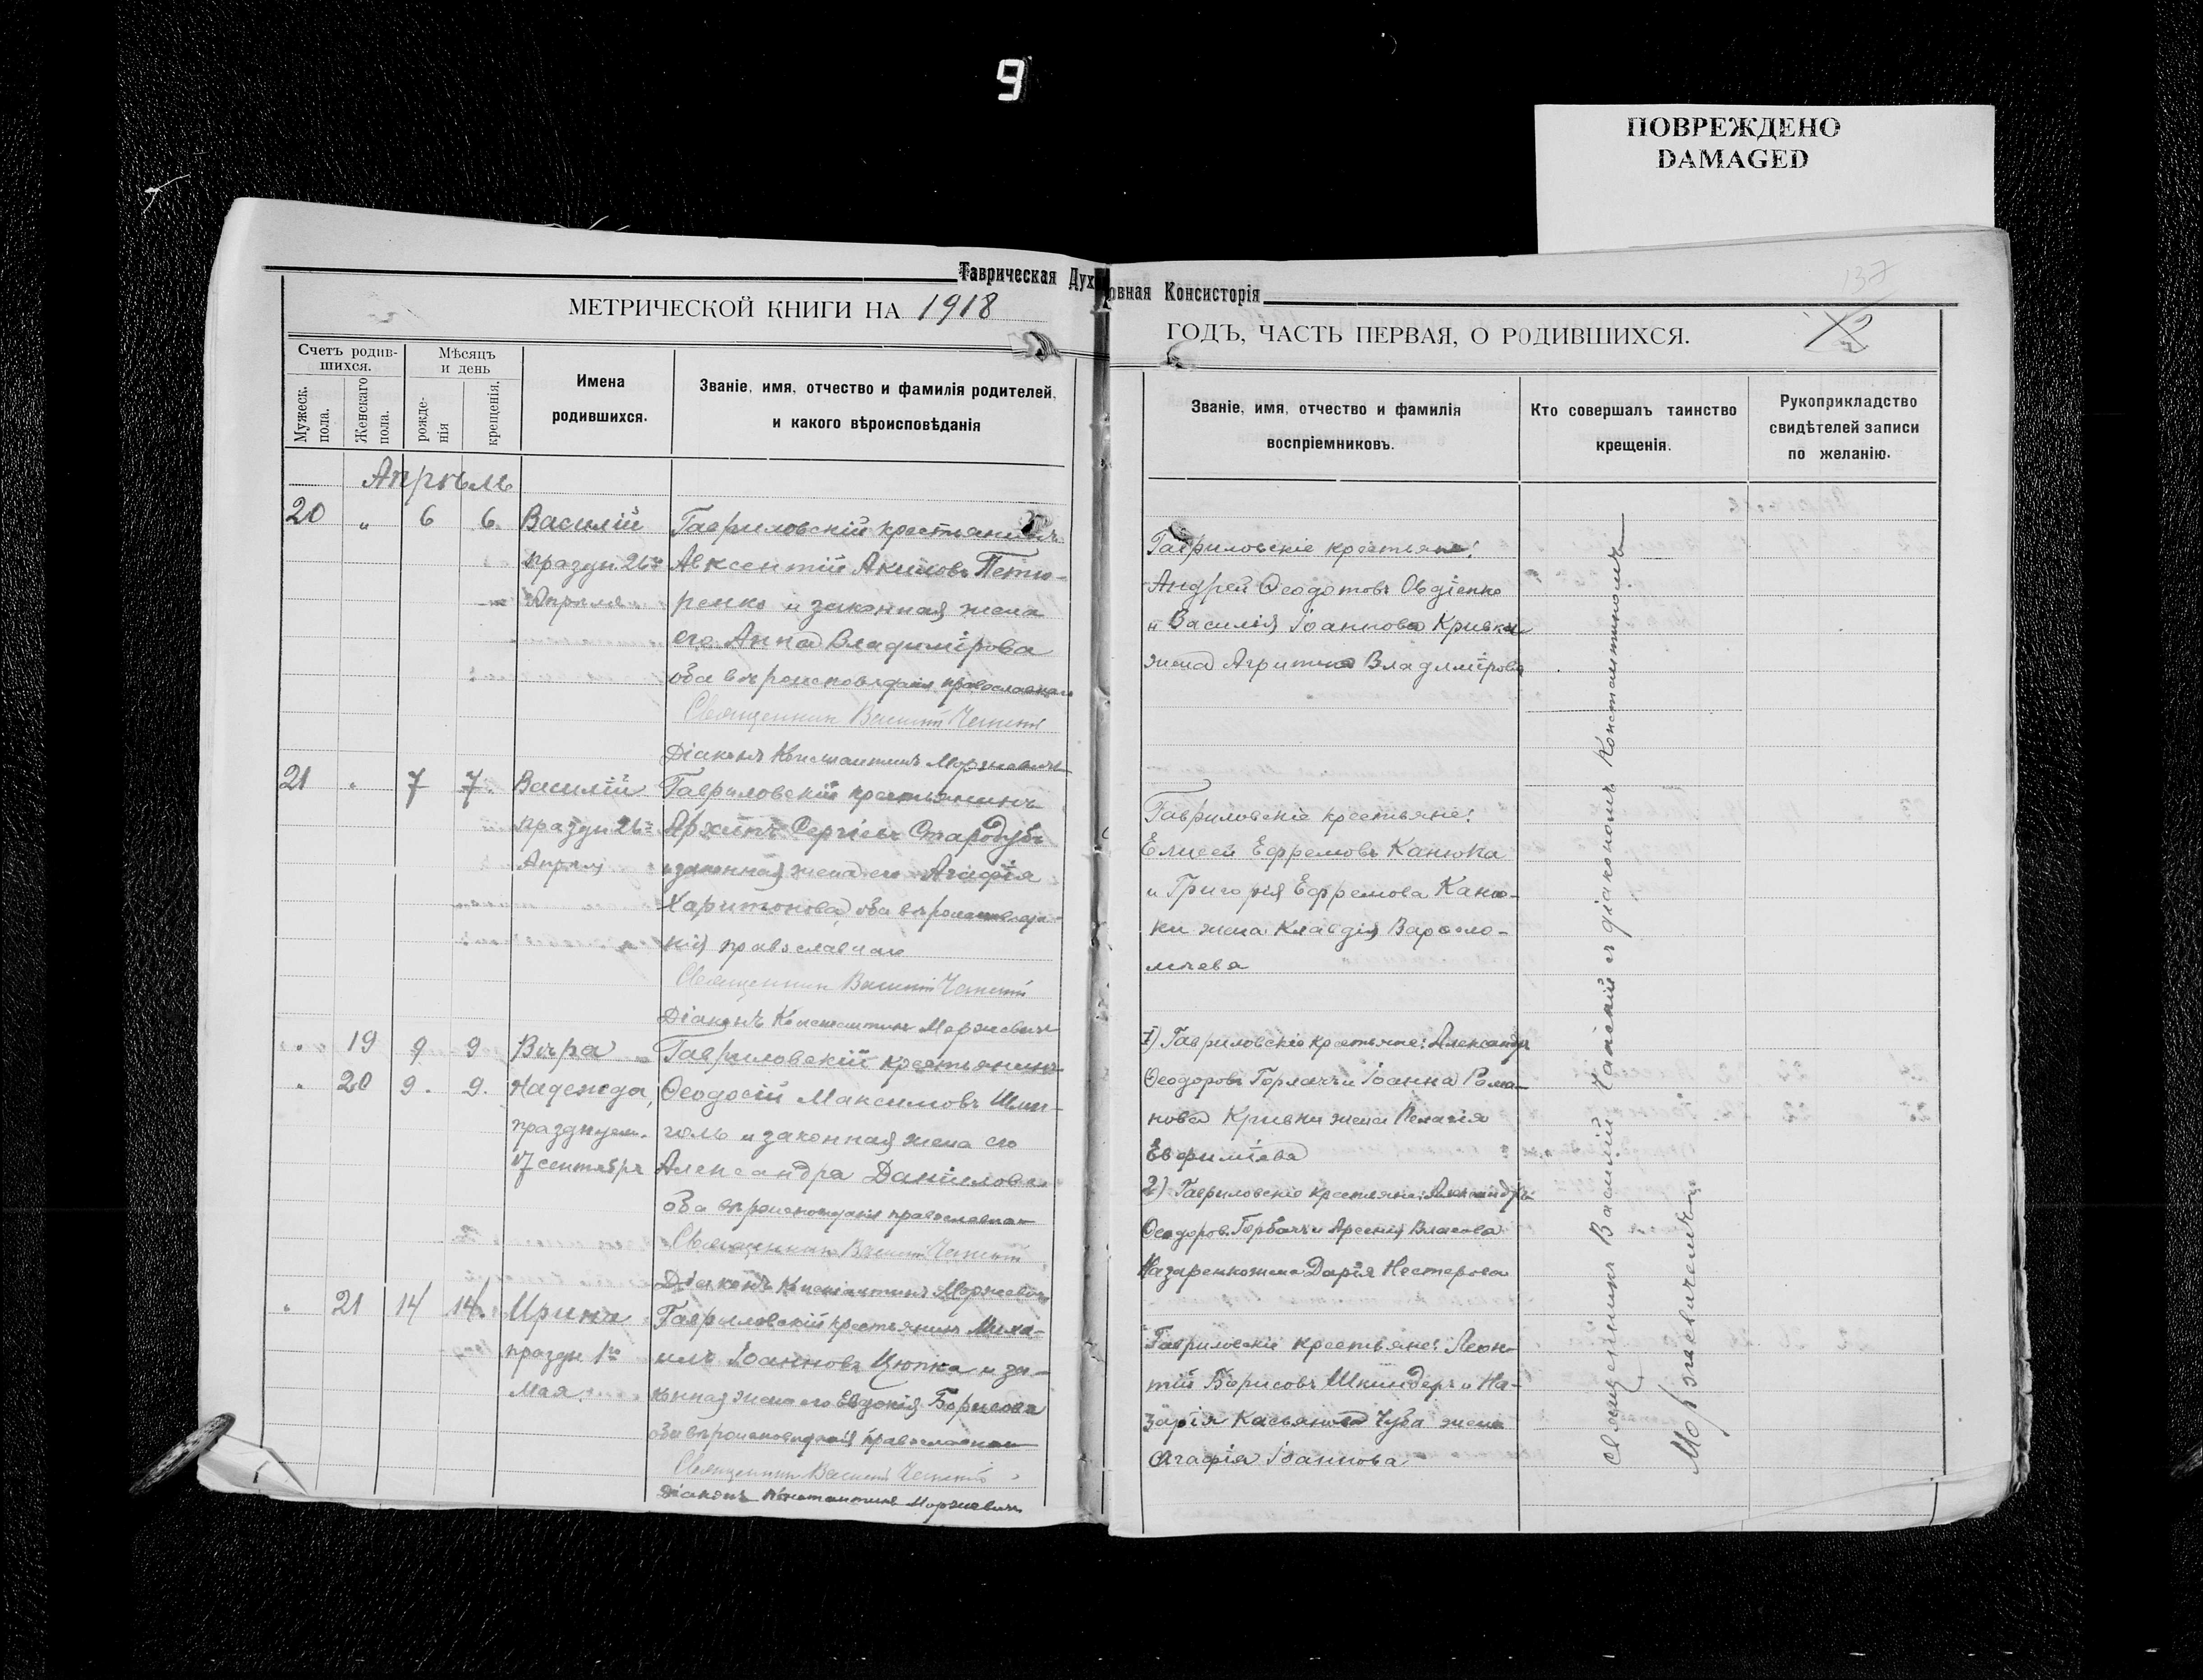 9
ПОВРЕЖДЕНО
DAMAGED
Таврическая Духовная Консисторія
МЕТРИЧЕСКОЙ КНИГИ НА 1918
ГОДЪ, ЧАСТЬ ПЕРВАЯ, О РОДИВШИХСЯ.
137
Счетъ родив-
шихся.
Мужеск. пола.
Женскаго пола.
Мѣсяцъ
и день
рожде-
нія
крещенія.
Имена
родившихся.
Званіе, имя, отчество и фамилія родителей,
и какого вѣроисповѣданія
Званіе, имя, отчество и фамилія
воспріемниковъ.
Кто совершалъ таинство
крещенія.
Рукоприкладство
свидѣтелей записи
по желанію.
Апрѣль
20 „ 6 6. Василій Гавриловскій крестьянинъ
праздн. 26го Авксентій Акимовъ Петю-
Апрѣля ренко и законная жена
его Анна Владимірова
оба вѣроисповѣданія православнаго
Священникъ Василій
Діаконъ Константинъ Моржкевичъ
Гавриловскіе крестьяне:
Андрей Ѳеодотовъ Овдіенко
и Василія Іоаннова Кривка
жена Агрипина Владимірова
21 „ 7 7. Василій Гавриловскій крестьянинъ
праздн 26го Архипъ Сергіевъ Стародубъ
Апрѣля и законная жена его Агафія
Харитонова, оба вѣроисповѣда-
нія православнаго
Священникъ Василій
Діаконъ Константинъ Моржкевичъ
Гавриловскіе крестьяне:
Елисей Ефремовъ Канюка
и Григорія Ефремова Каню-
ки жена Клавдія Варѳоло-
меева
„ 19 9 9 Вѣра Гавриловскій крестьянинъ
„ 20 9. 9. Надежда, Ѳеодосій Максимовъ
празднуем. и законная жена его
17 сентября Александра Даніилова
оба вѣроисповѣданія православнаго
Священникъ Василій
Діаконъ Константинъ Моржкевичъ
1) Гавриловскіе крестьяне: Александръ
Ѳеодоровъ и Іоанна Рома-
нова Кривки жена Пелагія
Евфиміева
2) Гавриловскіе крестьяне: Александръ
Ѳеодоров. Горбачъ и Арсенія Власова
Назаренко жена Дарія Нестерова
„ 21 14 14. Ирина Гавриловскій крестьянинъ Миха-
праздн 5го илъ Іоанновъ Цюпка и за-
Мая конная жена его Евдокія Борисова
оба вѣроисповѣданія православнаго
Священникъ Василій
Діаконъ Константинъ Моржкевичъ
Гавриловскіе крестьяне: Леон-
тій Борисовъ Шкиндеръ и На-
зарія Касьянова Чуба жена
Агафія Іоаннова
Священникъ Василій съ діакономъ Константиномъ